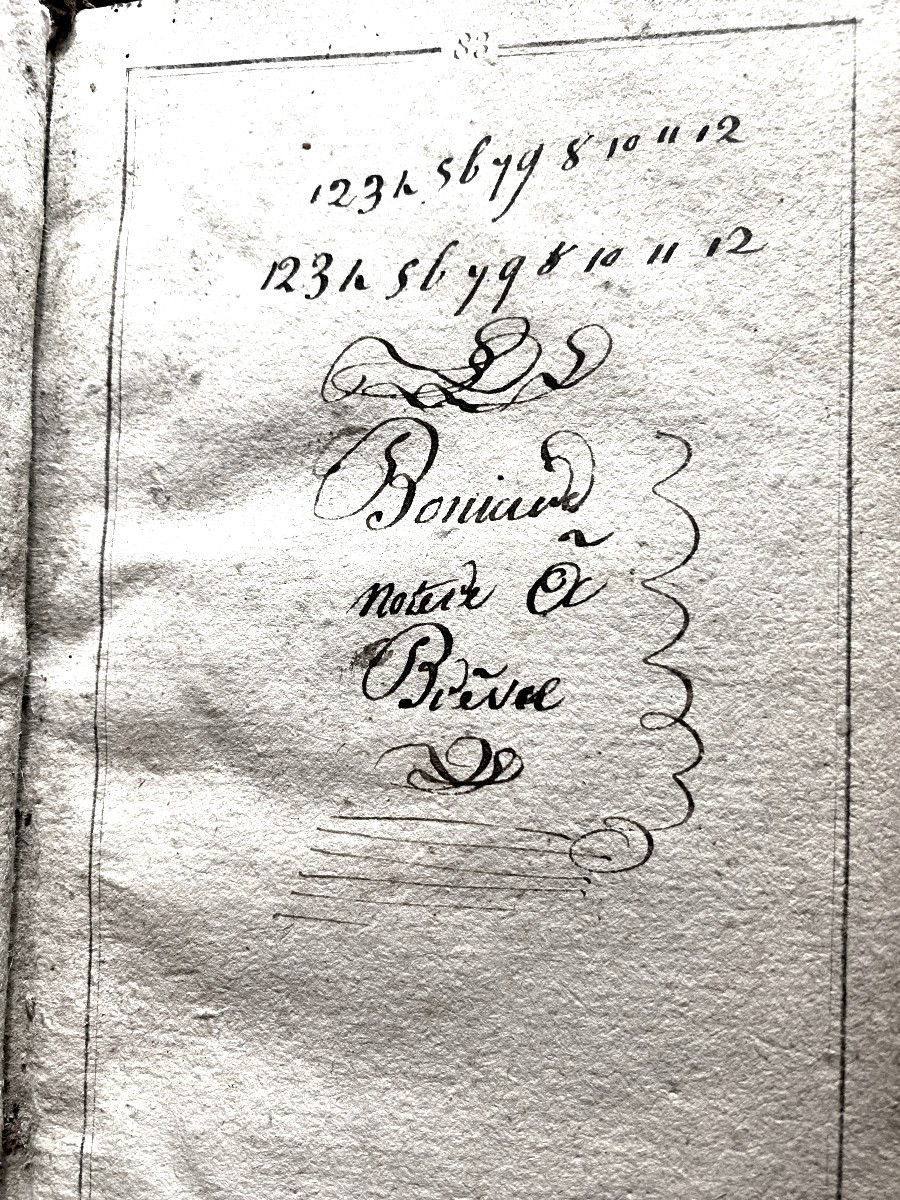 83
1 2 3 4 5 6 7 9 8 10 11 12
1 2 3 4 5 6 7 9 8 10 11 12
Boniard
Notere à
Brêvel